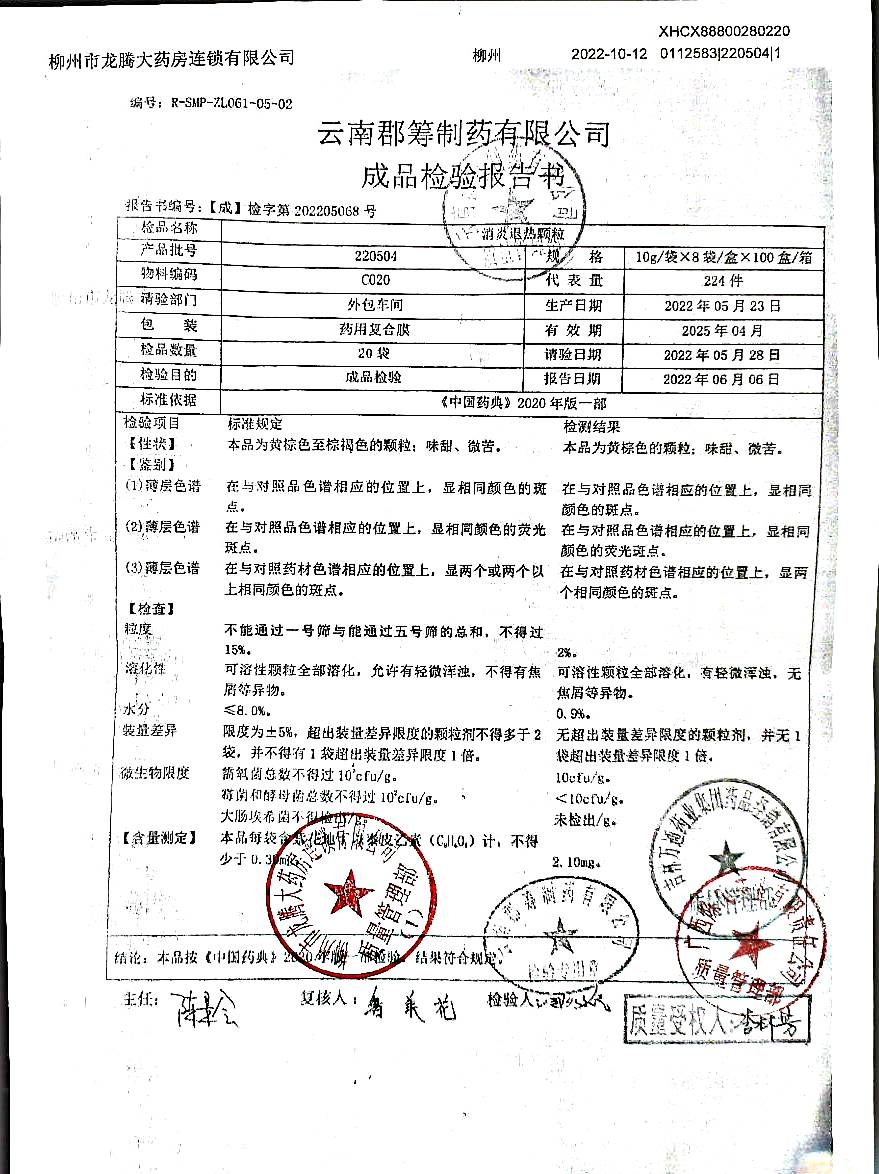 XHCX88800280220
柳州市龙腾大药房连锁有限公司 柳州 2022-10-12 0112583|220504|1
编号：R-SMP-ZL061-05-02
云南郡筹制药有限公司
成品检验报告书
报告书编号：【成】检字第 202205068 号
检品名称 消炎退热颗粒
产品批号 220504 规 格 10g/袋×8袋/盒×100盒/箱
物料编码 C020 代 表 量 224 件
请验部门 外包车间 生产日期 2022 年 05 月 23 日
包 装 药用复合膜 有 效 期 2025 年 04 月
检品数量 20 袋 请验日期 2022 年 05 月 28 日
检验目的 成品检验 报告日期 2022 年 06 月 06 日
标准依据 《中国药典》2020 年版一部
检验项目 标准规定 检测结果
【性状】 本品为黄棕色至棕褐色的颗粒；味甜、微苦。 本品为黄棕色的颗粒；味甜、微苦。
【鉴别】
(1)薄层色谱 在与对照品色谱相应的位置上，显相同颜色的斑 在与对照品色谱相应的位置上，显相同
点。 颜色的斑点。
(2)薄层色谱 在与对照品色谱相应的位置上，显相同颜色的荧光 在与对照品色谱相应的位置上，显相同
斑点。 颜色的荧光斑点。
(3)薄层色谱 在与对照药材色谱相应的位置上，显两个或两个以 在与对照药材色谱相应的位置上，显两
上相同颜色的斑点。 个相同颜色的斑点。
【检查】
粒度 不能通过一号筛与能通过五号筛的总和，不得过
15%。 2%。
溶化性 可溶性颗粒全部溶化，允许有轻微浑浊，不得有焦 可溶性颗粒全部溶化，有轻微浑浊，无
屑等异物。 焦屑等异物。
水分 ≤8.0%。 0.9%。
装量差异 限度为±5%，超出装量差异限度的颗粒剂不得多于 2 无超出装量差异限度的颗粒剂，并无 1
袋，并不得有 1 袋超出装量差异限度 1 倍。 袋超出装量差异限度 1 倍。
微生物限度 需氧菌总数不得过 10³cfu/g。 10cfu/g。
霉菌和酵母菌总数不得过 10²cfu/g。 <10cfu/g。
大肠埃希菌不得检出/g。 未检出/g。
【含量测定】 本品每袋含 计，不得
少于 0.3 mg。 2.10mg。
吉林万通药业集团药品经销有限公司
柳州市龙腾大药房连锁有限公司
质量管理部
(1)
检验专用章
质量管理部
结论：本品按《中国药典》2020 年版一部检验，结果符合规定。
主任： 复核人： 检验人：
质量受权人：